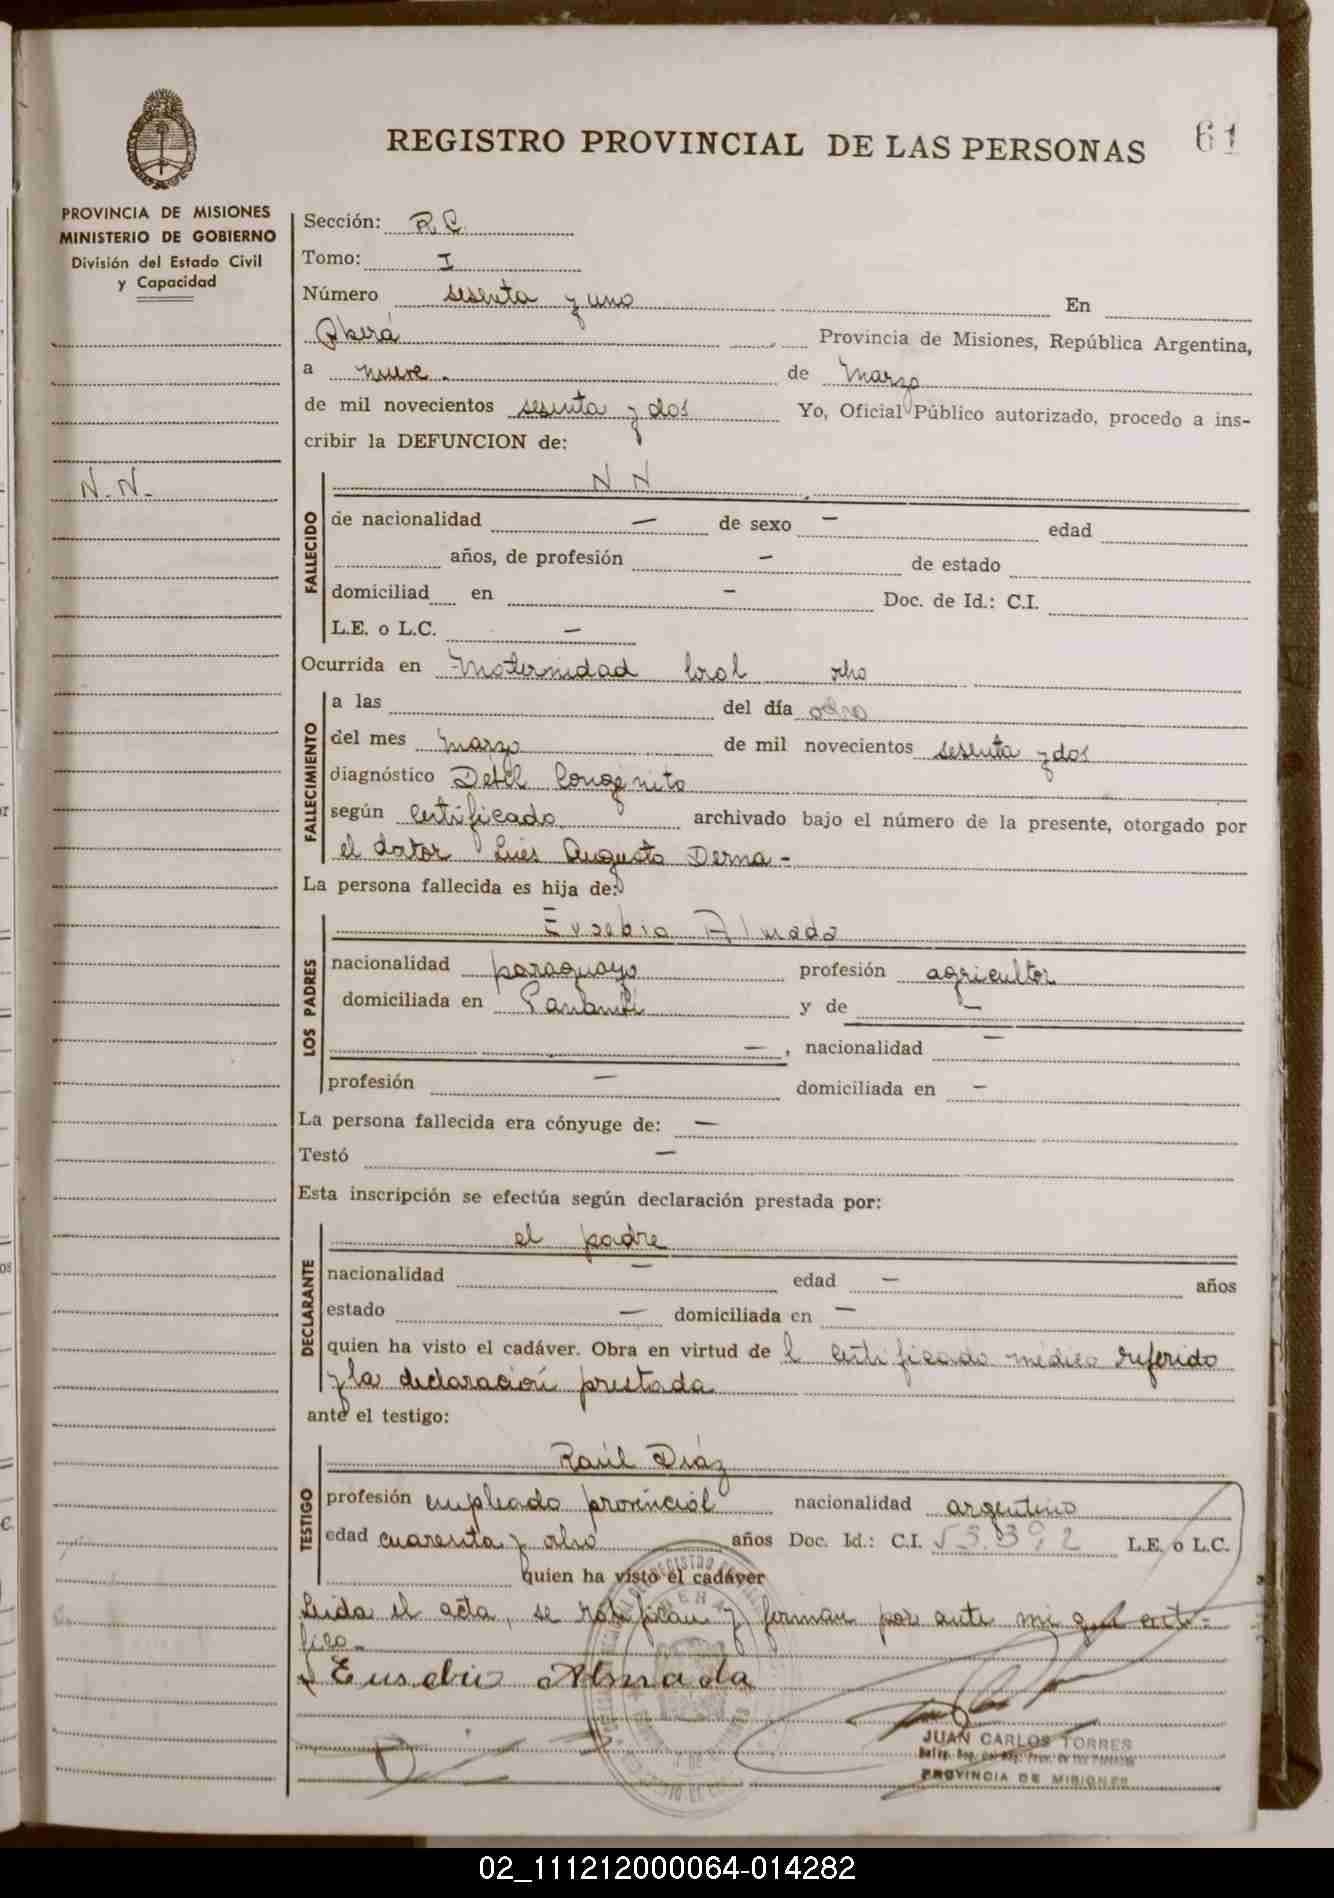 REGISTRO PROVINCIAL DE LAS PERSONAS
61
PROVINCIA DE MISIONES
MINISTERIO DE GOBIERNO
División del Estado Civil
y Capacidad
N. N.
Sección: R.C.
Tomo: I
Número sesenta y uno En
Oberá Provincia de Misiones, República Argentina,
a nueve. de Marzo
de mil novecientos sesenta y dos Yo, Oficial Público autorizado, procedo a ins-
cribir la DEFUNCION de:
FALLECIDO
N N
de nacionalidad — de sexo — edad
años, de profesión — de estado
domiciliad en — Doc. de Id.: C.I.
L.E. o L.C. —
Ocurrida en Maternidad local ocho
FALLECIMIENTO
a las del día ocho
del mes Marzo de mil novecientos sesenta y dos
diagnóstico Debil Congénito
según certificado archivado bajo el número de la presente, otorgado por
el doctor Luis Augusto Derna -
La persona fallecida es hija de:
LOS PADRES
Eusebio Almada
nacionalidad paraguayo profesión agricultor
domiciliada en Panambí y de —
—, nacionalidad —
profesión — domiciliada en —
La persona fallecida era cónyuge de: —
Testó —
Esta inscripción se efectúa según declaración prestada por:
DECLARANTE
el padre
nacionalidad — edad — años
estado — domiciliada en —
quien ha visto el cadáver. Obra en virtud de l certificado médico referido
y la declaración prestada
ante el testigo:
TESTIGO
Raúl Diaz
profesión empleado provincial nacionalidad argentino
edad cuarenta y ocho años Doc. Id.: C.I. 53.392 L.E. o L.C.
quien ha visto el cadáver
Leida el acta, se ratifican y firman por ante mi que certi-
fico.
Eusebio Almada
JUAN CARLOS TORRES
PROVINCIA DE MISIONES
02_111212000064-014282